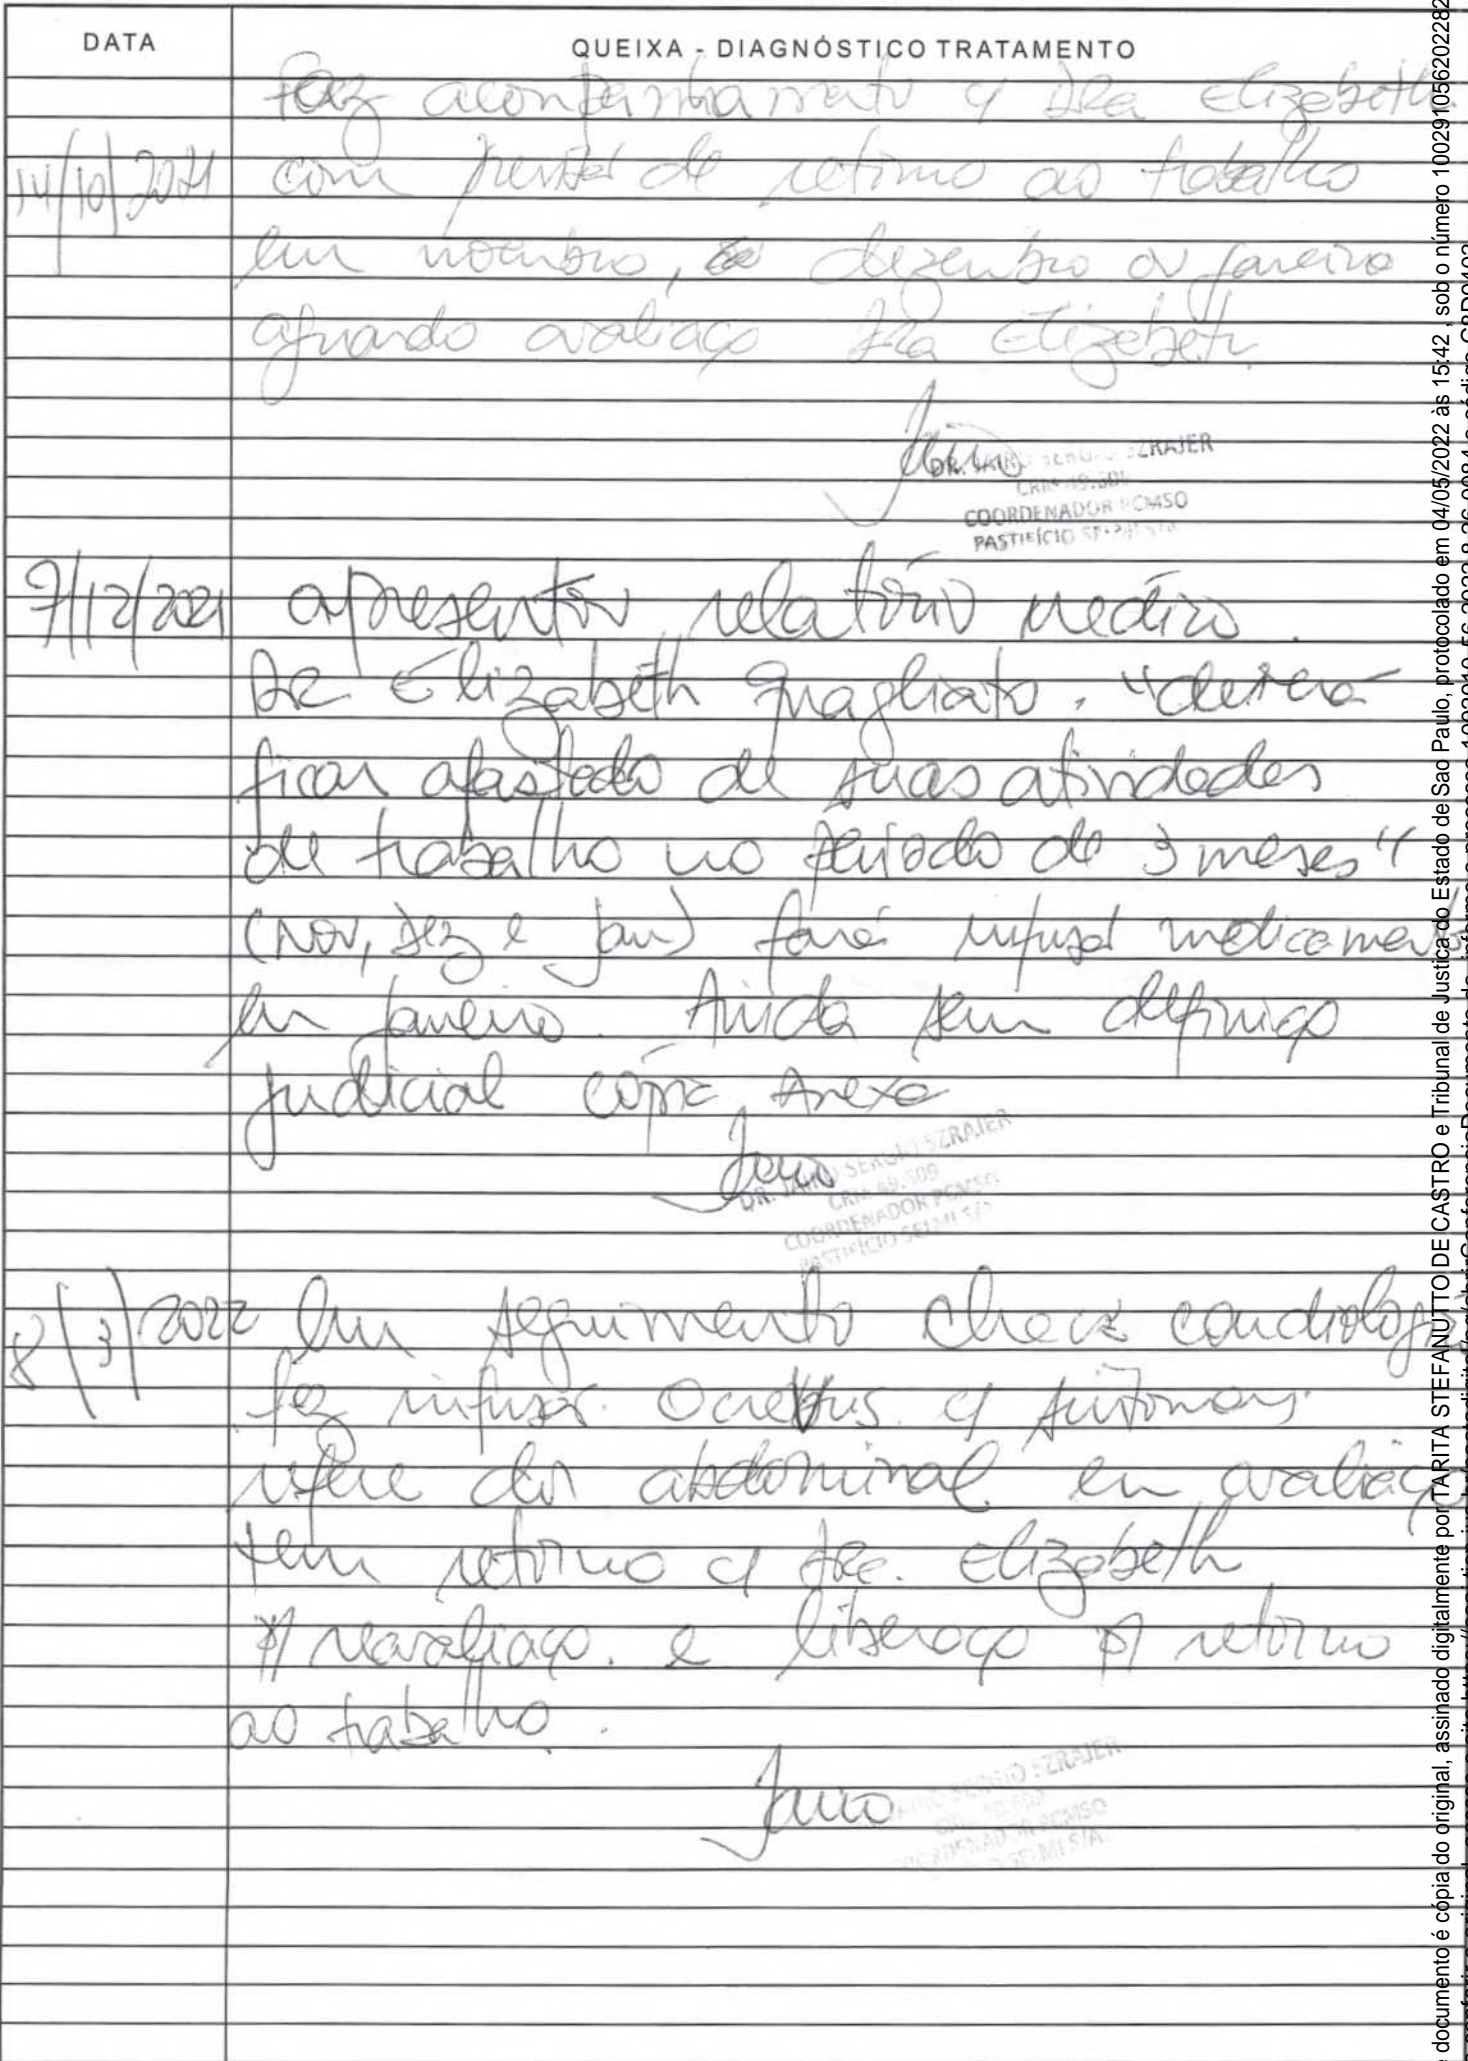 DATA
QUEIXA - DIAGNÓSTICO TRATAMENTO
Faz acompanhamento c/ Dra Elizabeth
14/10/2021 com previsão de retorno ao trabalho
em novembro, dezembro ou janeiro
aguardo avaliação Dra Elizabeth
DR. JAIRO SERGIO SZRAJER
CRM 49.509
COORDENADOR PCMSO
PASTIFÍCIO SELMI S/A
7/12/2021 apresentou relatório médico.
Dra Elizabeth Quagliato. "deverá
ficar afastado de suas atividades
de trabalho no período de 3 meses"
(Nov, Dez e Jan) fará infusão medicamento
em janeiro. Ainda sem definição
judicial cópia Anexa
Jairo
DR. JAIRO SERGIO SZRAJER
CRM 49.509
COORDENADOR PCMSO
PASTIFÍCIO SELMI S/A
8/3/2022 Em seguimento check cardiologia
fez infusão Ocrevus c/ sintomas
refere dor abdominal em avaliação
tem retorno c/ Dra. Elizabeth
p/ reavaliação. e liberação p/ retorno
ao trabalho.
Jairo
SERGIO SZRAJER
COORDENADOR PCMSO
SELMI S/A
documento é cópia do original, assinado digitalmente por TARITA STEFANUTTO DE CASTRO e Tribunal de Justica do Estado de Sao Paulo, protocolado em 04/05/2022 às 15:42 , sob o número 10029105620228